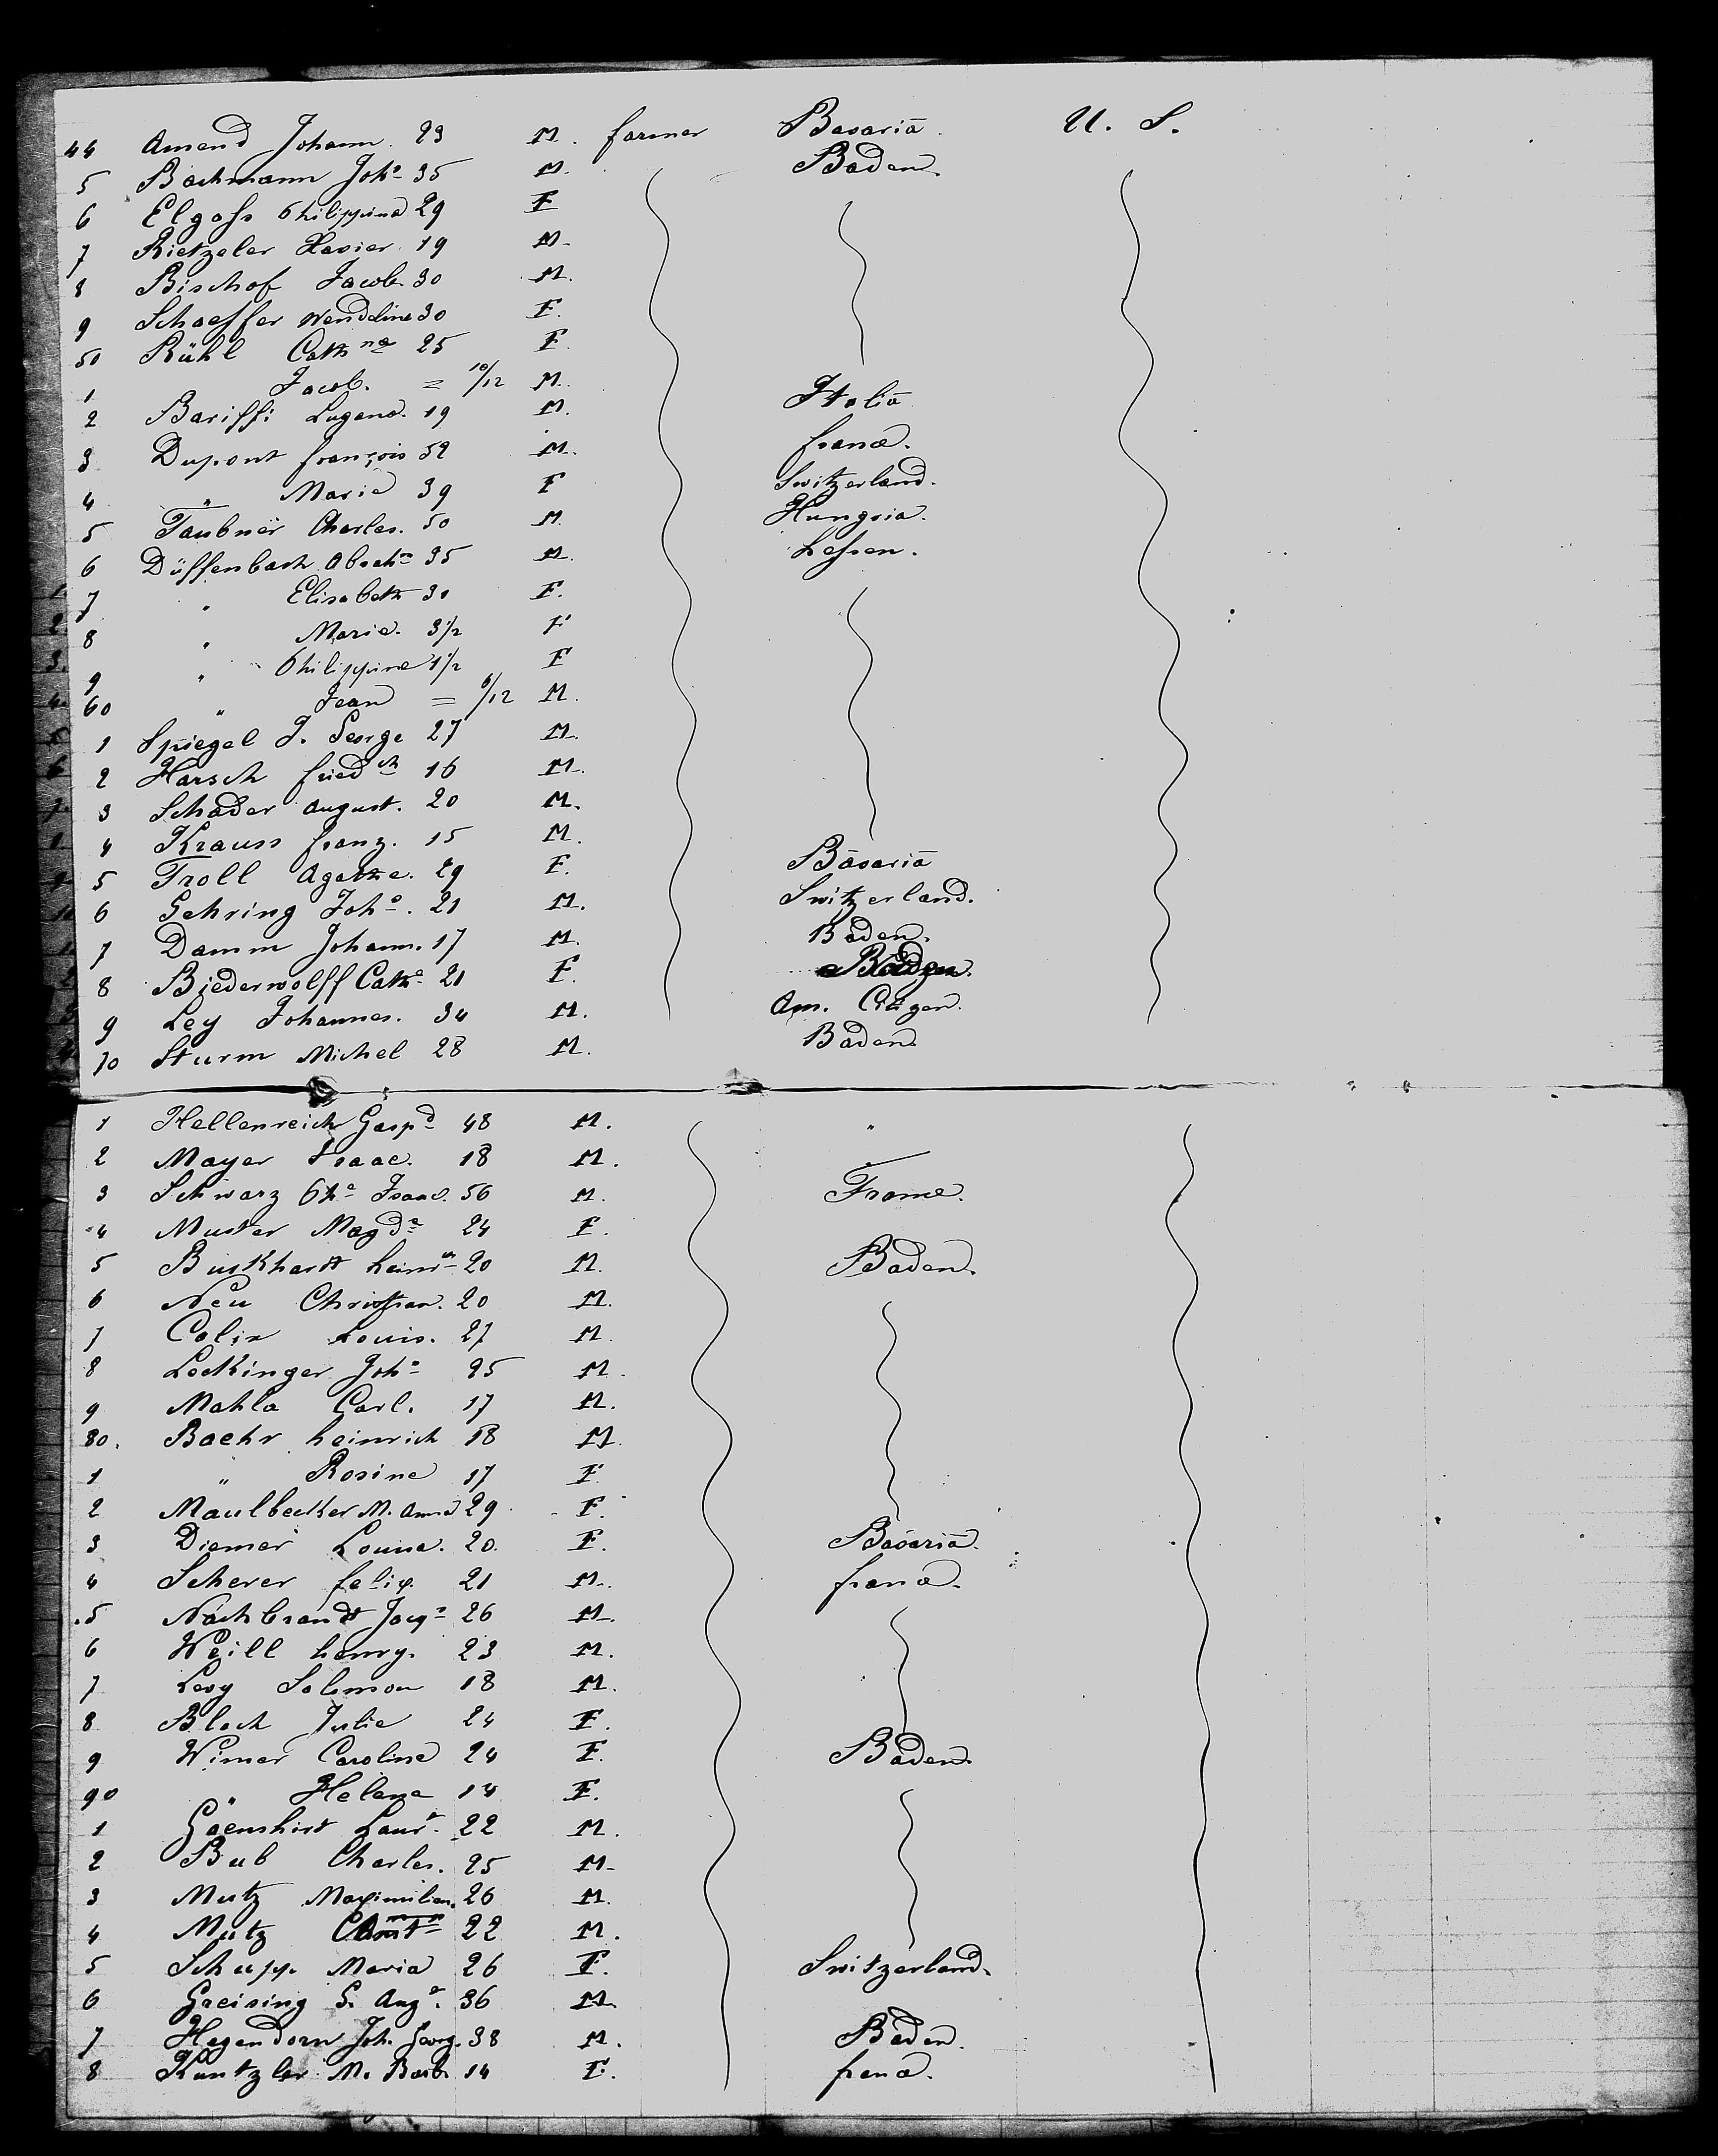 44 Amend Johann 23 M. farmer Bavaria. U. S.
5 Bachmann Joh. 35 M. Baden.
6 Elgass Philippina 29 F
7 Rietzeler Xavier 19 M.
8 Bischof Jacob. 30 M.
9 Schaeffer Wendeline 30 F.
50 Rühl Cath.na 25 F.
1 Jacob. = 10/12 M.
2 Bariffi Eugene. 19 M. Italia
3 Dupont françois 52 M. france.
4 " Marie 39 F Switzerland.
5 Taubner Charles. 50 M. Hungria.
6 Düffenbach 35 M. hessen.
7 " Elisabeth 30 F.
8 " Marie. 3 1/2 F
9 " Philippine 1 1/2 F
60 " Jean = 6/12 M.
1 Spiegel J. George 27 M.
2 Harsch friedch 16 M.
3 Schader August. 20 M.
4 Krauss franz. 15 M.
5 Troll Agathe. 29 F. Bavaria
6 Gehring Joh. 21 M. Switzerland.
7 Damm Johann. 17 M. Baden.
8 Biederwolff Cath. 21 F.
9 Ley Johannes. 34 M. Am. Citizen.
70 Sturm Michel 28 M. Baden.
1 Hellenreich Gaspd 48 M. "
2 Mayer Isaac. 18 M.
3 Schwarz Isaac. 56 M. France.
4 Muster Magda 24 F.
5 Burkhardt heinrh 20 M. Baden.
6 Neu Christian. 20 M.
7 Colin Louis. 27 M.
8 Leckinger Joh. 25 M.
9 Mahla Carl. 17 M.
80. Baehr heinrich 18 M.
1 " Rosine 17 F.
2 Maulbecker M. Anna 29 F.
3 Diemer Louise. 20. F. Bavaria.
4 Scherer felix. 21 M. france.
5 Nachbrandt Jacq. 26 M.
6 Weill henry. 23 M.
7 Levy Solomon 18 M.
8 Bloch Julie 24 F.
9 Wimer Caroline 24 F. Baden.
90 " Helene 14 F.
1 Gaenshirt Laur. 22 M.
2 Bub Charles. 25 M.
3 Mutz Maximilian. 26 M.
4 Mutz 22 M.
5 Schupp. Maria 26 F. Switzerland.
6 Greising G. Aug. 36 M.
7 Hegendorn Joh. Georg. 38 M. Baden.
8 Kuntzler M. Barb. 14 F. france.